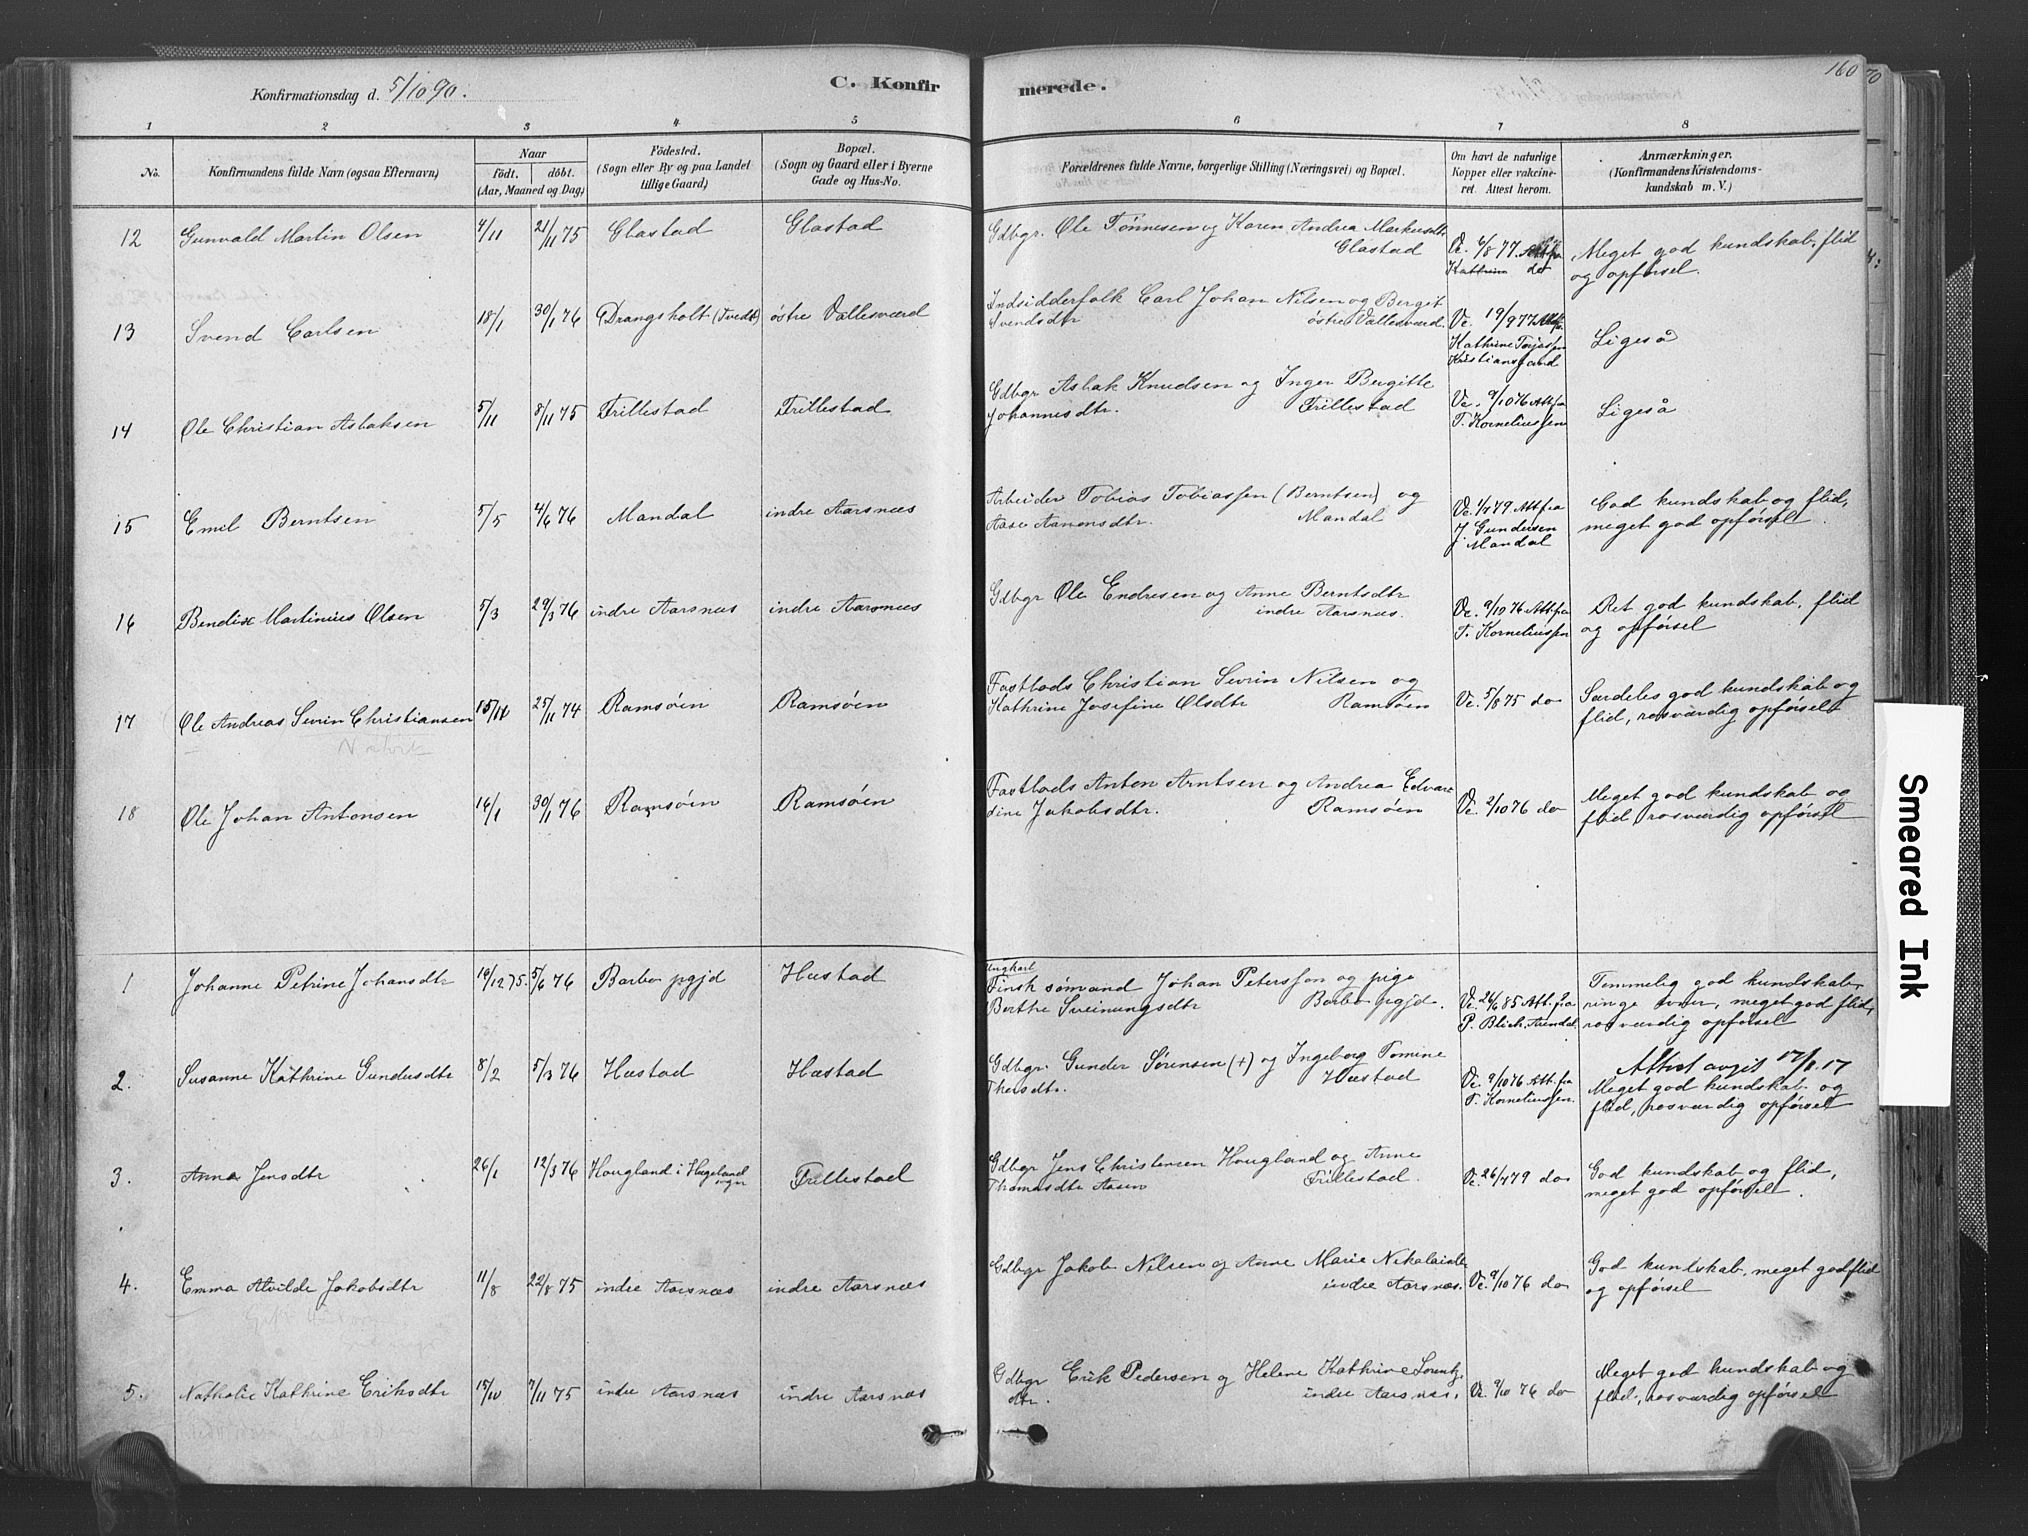 Konfirmationsdag d. 5/10 90.
C. Konfir
merede.
160
1 2 3 4 5 6 7 8
No.
Konfirmandens fulde Navn (ogsaa Efternavn)
Naar
födt. döbt.
(Aar, Maaned og Dag)
Födested.
(Sogn eller By og paa Landet
tillige Gaard)
Bopæl.
(Sogn og Gaard eller i Byerne
Gade og Hus-No.
Forældrenes fulde Navne, borgerlige Stilling (Næringsvei) og Bopæl.
Om havt de naturlige
Kopper eller vakcine-
ret. Attest herom.
Anmærkninger.
(Konfirmandens Kristendoms-
kundskab m. V.)
12 Gunvald Martin Olsen 4/11 21/11 75 Glastad Glastad
Gdbgr. Ole Tønnesen og Karen Andrea Markusdtr
Glastad
Vc. 6/8 77. Att. fra
Kathrin do
Meget god kundskab, flid
og opførsel.
13 Svend Carlsen 18/1 30/1 76 Drangsholt (Tvedt) östre Vallesværd
Indsidderfolk Carl Johan Nilsen og Berget
Svendsdtr östre Vallesværd.
Vc. 19/9 77
Kathrine
Kristianssand
Ligeså
14 Ole Christian Aslaksen 5/11 8/11 75 Frillestad Frillestad
Gdbgr Aslak Knudsen og Inger Bergitte
Johannesdtr. Frillestad
Vc. 9/10 76 Att. fra
T. Korneliussen
Ligeså
15 Emil Berntsen 5/5 4/6 76 Mandal indre Aarsnæs
Arbeider Tobias Tobiassen (Berntsen) og
Aase Aanonsdtr. Mandal
Att. fra
J Gundersen
Mandal
God kundskab og flid,
meget god opførsel.
16 Bendix Martinius Olsen 5/3 29/3 76 indre Aarsnæs indre Aarsnæs
Gdbgr Ole Endresen og Anne Berntsdtr
indre Aarsnæs.
Vc. 9/10 76 Att. fra
T. Korneliussen
Ret god kundskab, flid
og opførsel
17 Ole Andreas Sevrin Christiansen 15/11 25/11 74 Ramsøen Ramsøen
Fastlods Christian Sevrin Nilsen og
Kathrine Josefine Olsdtr Ramsøen
Vc. 5/8 75 do
Særdeles god kundskab og
flid, rosværdig opførsel
18 Ole Johan Antonsen 16/1 30/1 76 Ramsøen Ramsøen
Fastlods Anton Arntsen og Andrea Edvar
dine Jakobsdtr. Ramsøen
Vc. 2/10 76 do
Meget god kundskab og
flid, rosværdig opførsel
1 Johanne Petrine Johansdtr 19/12 75. 5/6 76 Barbo pgjd Hæstad
Ungkarl
Finsk sømand Johan Peterssen og pige
Berthe Sveinungsdtr Barbo pgjd.
Vc. 26/6 85 Att. fra
P. Blich, Arendal.
Temmelig god kundskab,
ringe evner, meget god flid,
rosværdig opførsel
2. Susanne Kathrine Gundersdtr 8/2 5/3 76 Hæstad Hæstad
Gdbgr. Gunder Sørensen (+) og Ingeborg Tomine
Theisdtr. Hæstad
Vc. 9/10 76 Att. fra
T. Korneliussen.
Attest avgit 17/8 17
Meget god kundskab og
flid, rosværdig opførsel
3. Anna Jensdtr 26/1 12/3 76 Hougland i Hægeland
sogn Frillestad
Gdbgr Jens Christensen Hougland og Anne
Thomasdtr Aasen Frillestad.
Vc. 26/4 79 do
God kundskab og flid,
meget god opførsel.
4. Emma Alvilde Jakobsdtr 11/8 22/8 75 indre Aarsnæs indre Aarsnæs
Gdbgr Jakob Nilsen og Anne Marie Nikolaidtr
indre Aarsnæs.
Vc. 9/10 76 do
God kundskab, meget god flid
og opførsel
5. Nathalie Kathrine Eriksdtr 15/10 7/11 75 indre Aarsnæs indre Aarsnæs
Gdbgr Erik Pedersen og Helene Kathrine Lorentz
dtr. indre Aarsnæs.
Vc. 9/10 76 do
Meget god kundskab og
flid, rosværdig opførsel
Smeared Ink